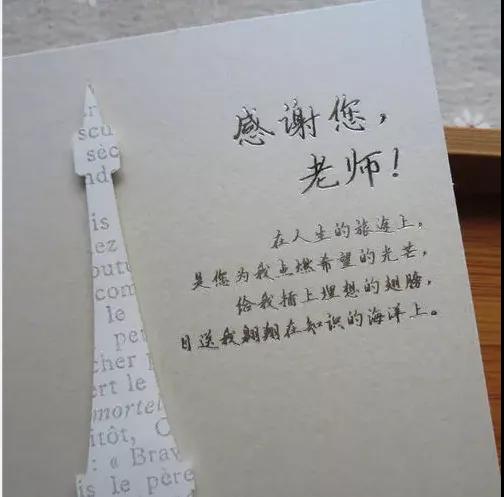 感谢您，
老师！
在人生的旅途上，
是您为我点燃希望的光芒，
给我插上理想的翅膀，
目送我翱翔在知识的海洋上。
scu
sèc
nd
is
ez
com
le
pet
cher
ert le
mortel
itôt, C
: « Brav
is le père